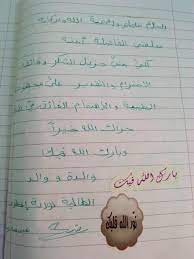 السلام عليكم ورحمة الله وبركاته
معلمتي الفاضلة
كل جزيل الشكر وفائق
الاحترام والتقدير على
الطيبة والاهتمام
جزاك الله خيراً
وبارك الله فيك
والدة و والد
الطالبة
بارك الله فيك
نور الله قلبك